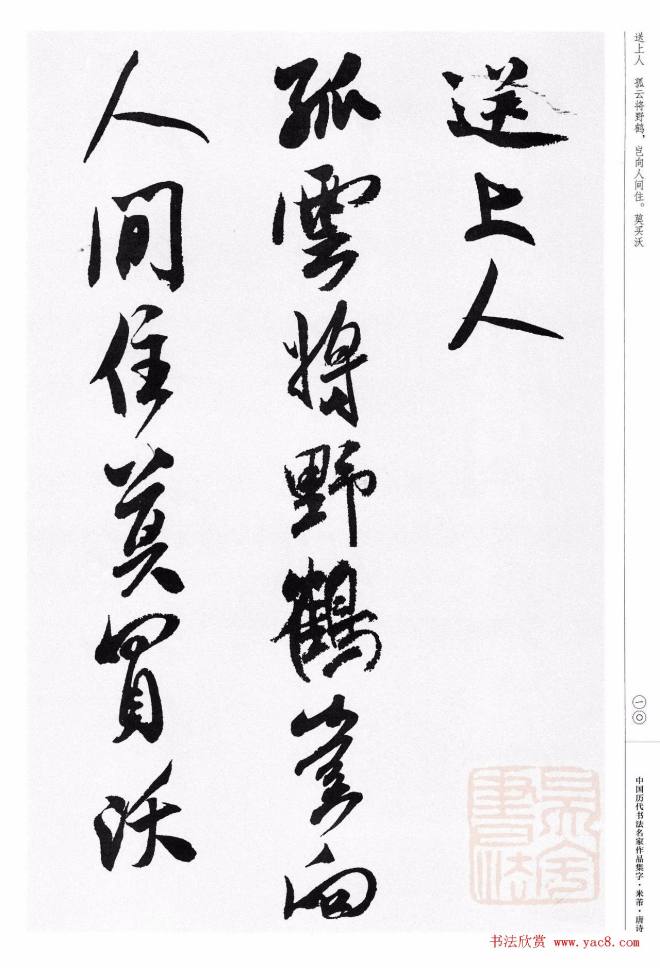 送上人 孤云将野鹤，岂向人间住。莫买沃
一〇
中国历代书法名家作品集字·米芾·唐诗
送上人
孤雲将野鶴豈向
人間住莫買沃
书法欣赏 www.yac8.com